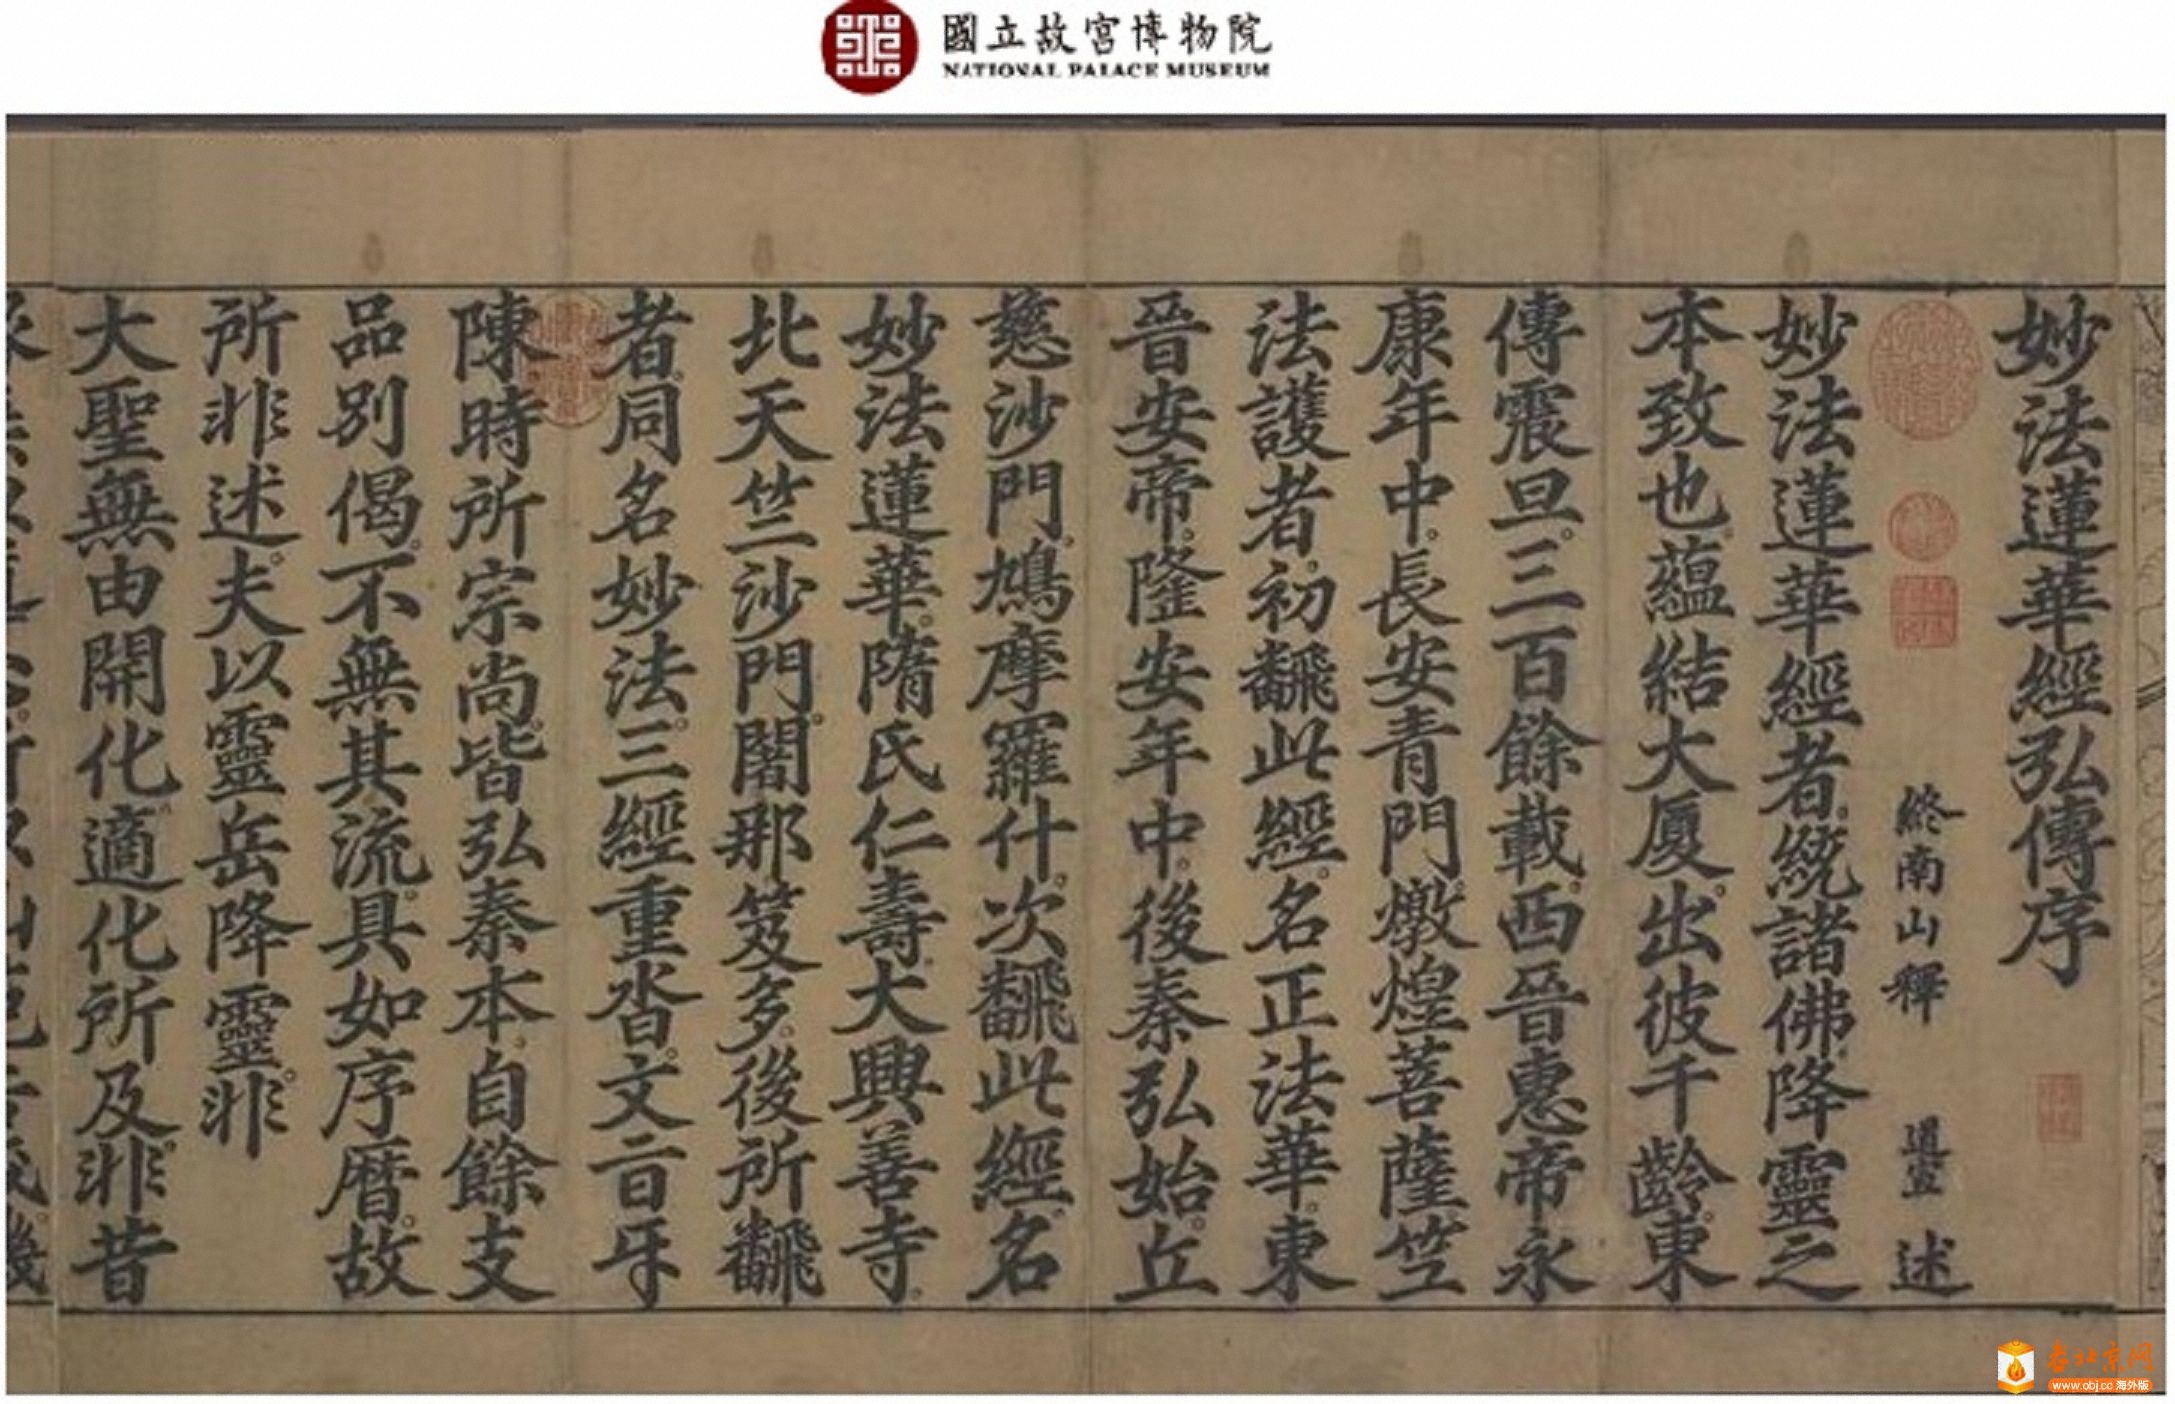 國立故宮博物院
NATIONAL PALACE MUSEUM
妙法蓮華經弘傳序
終南山釋 道宣 述
妙法蓮華經者。統諸佛降靈之
本致也。蘊結大厦。出彼千齡。東
傳震旦。三百餘載。西晉惠帝永
康年中。長安青門。燉煌菩薩。竺
法護者。初飜此經。名正法華。東
晉安帝。隆安年中。後秦弘始。丘
慈沙門。鳩摩羅什。次飜此經。名
妙法蓮華。隋氏仁壽。大興善寺。
北天竺沙門。闍那笈多。後所飜
者。同名妙法。三經重沓。文旨㸦
陳。時所宗尚。皆弘秦本。自餘支
品別偈。不無其流。具如序曆。故
所非述。夫以靈岳降靈。非
大聖無由開化。適化所及。非昔
www.obj.cc 海外版